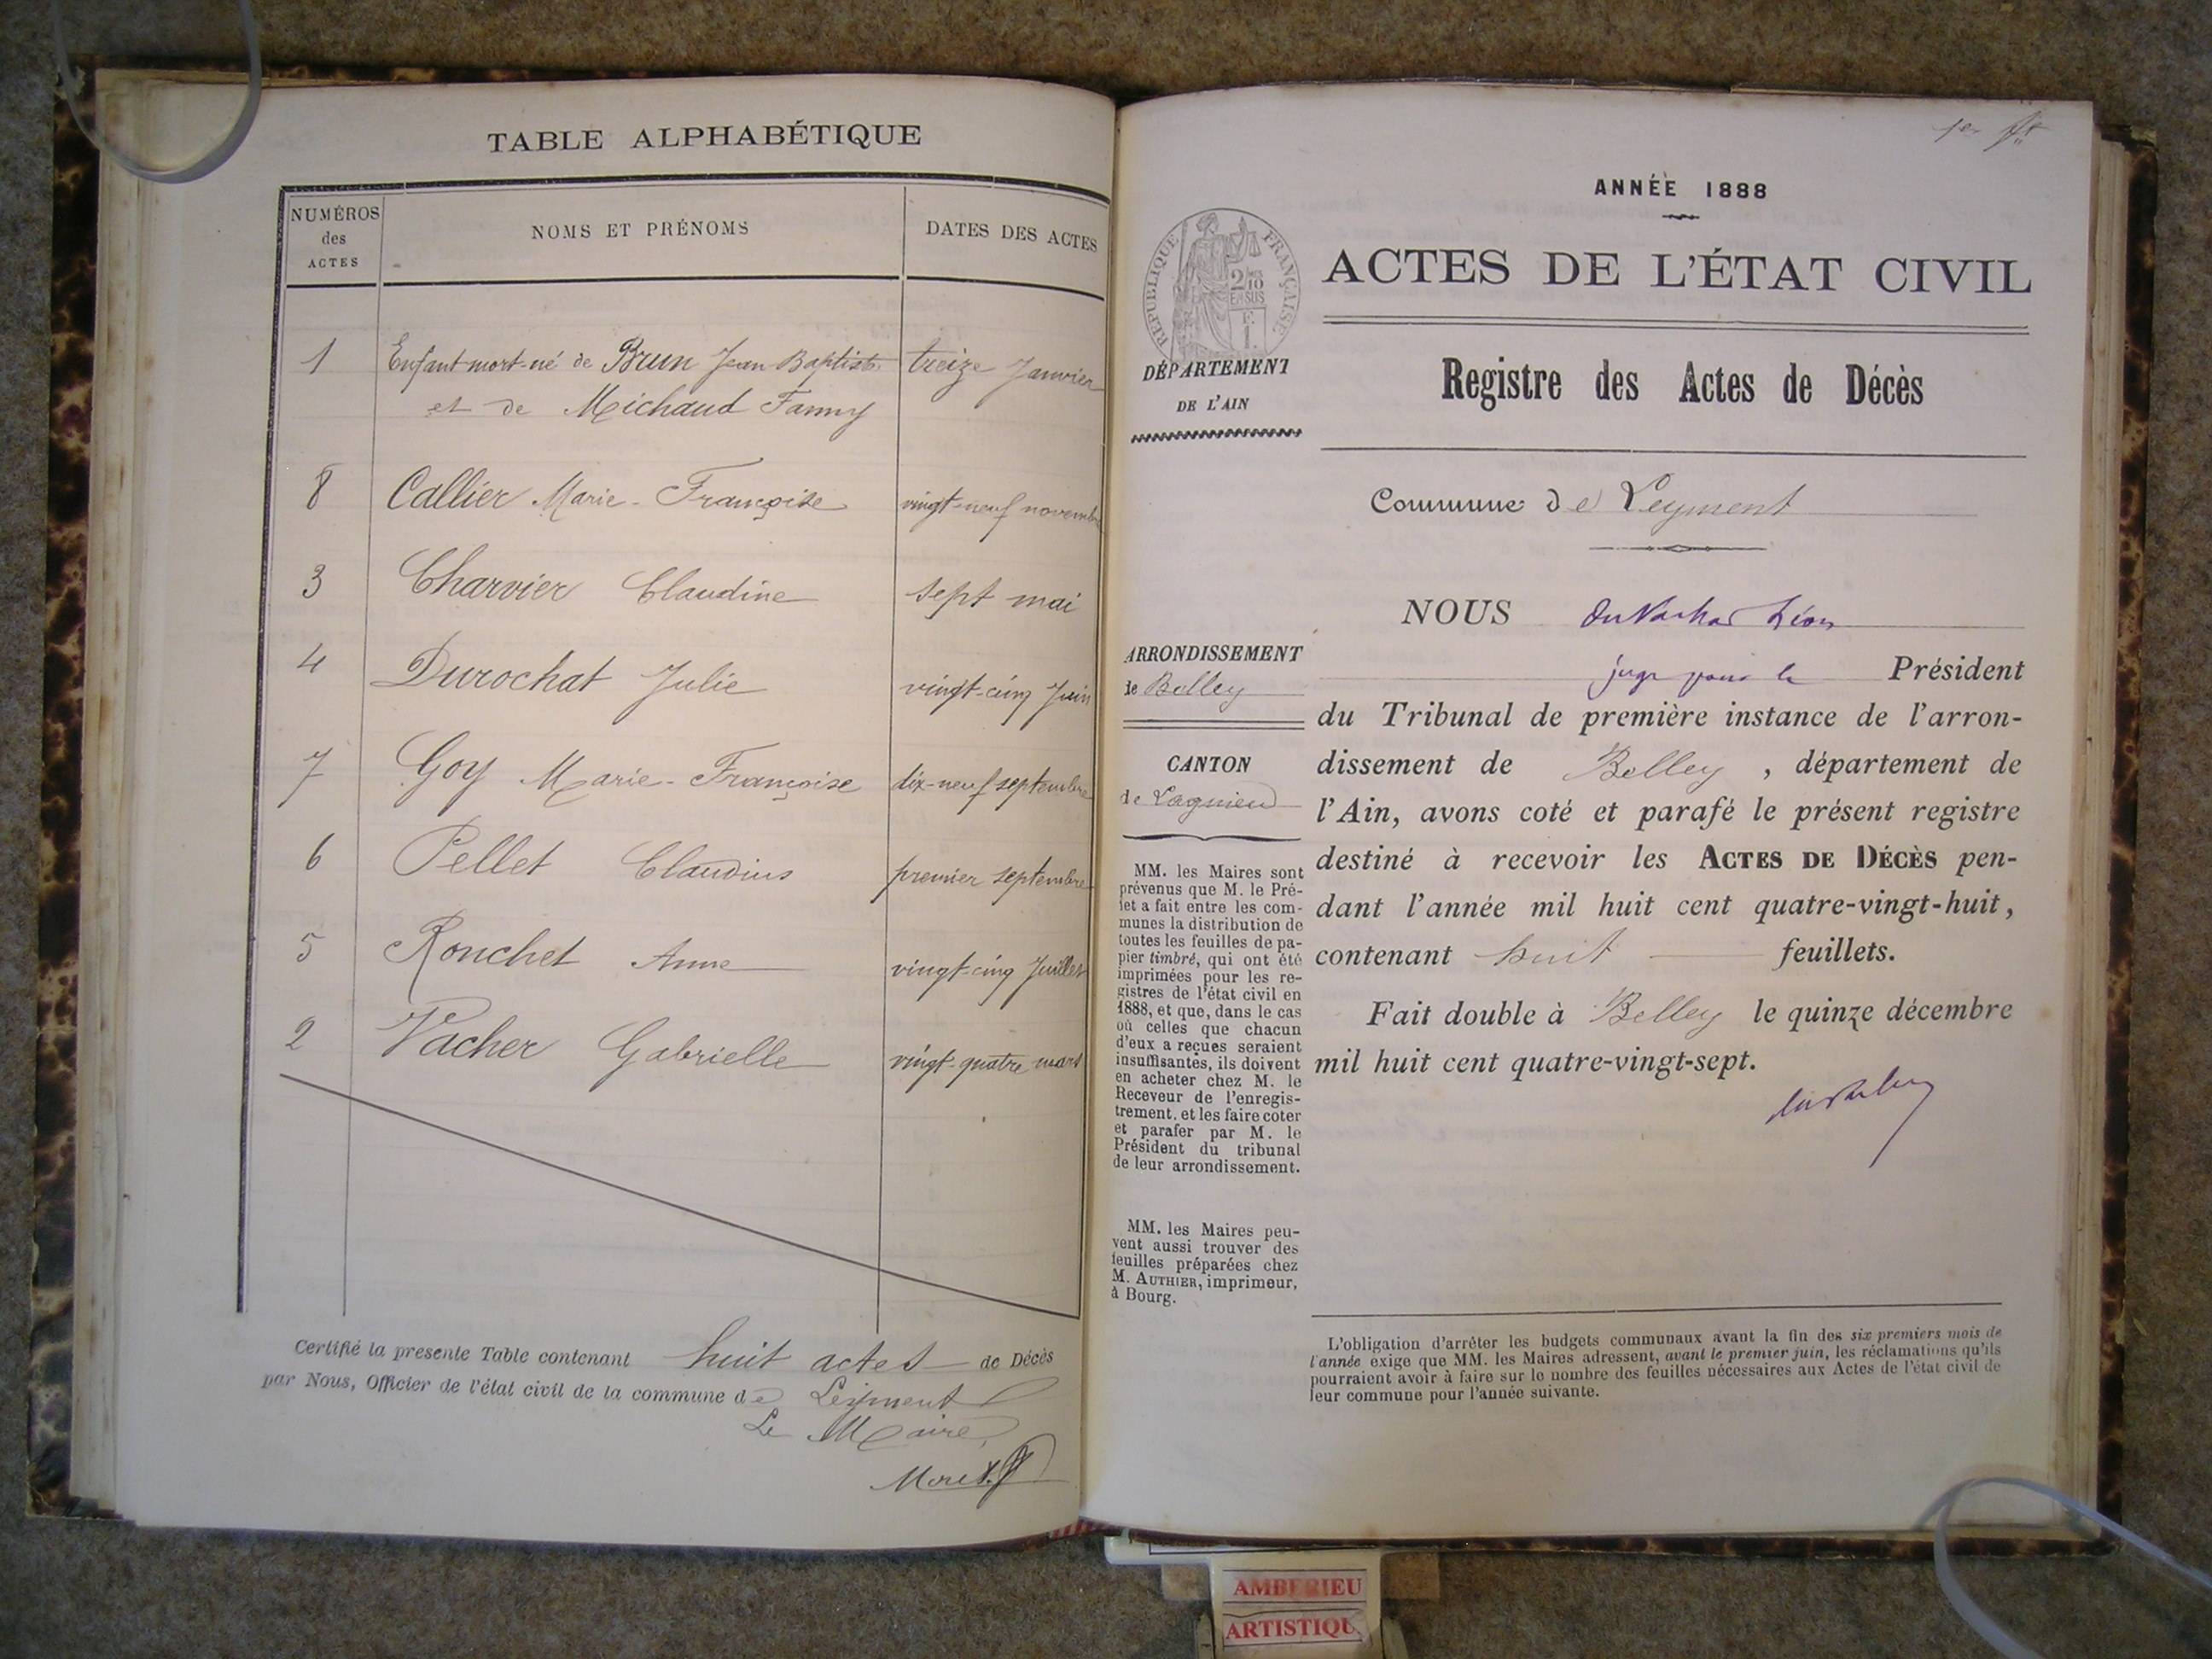 TABLE ALPHABÉTIQUE
NUMÉROS des ACTES
NOMS ET PRÉNOMS
DATES DES ACTES
1 Enfant mort-né de Brun Jean Baptiste treize Janvier
et de Michaud Fanny
8 Callier Marie-Françoise vingt-neuf novembre
3 Charvier Claudine sept mai
4 Durochat Julie vingt-cinq Juin
7 Goy Marie-Françoise dix-neuf septembre
6 Pellet Claudius premier septembre
5 Ronchet Anne vingt-cinq Juillet
2 Vacher Gabrielle vingt-quatre mars
Certifié la presente Table contenant huit actes de Décès
par Nous, Officier de l'état civil de la commune de Leyment
Le Maire,
1er
ANNÉE 1888
RÉPUBLIQUE FRANÇAISE
2/10
EN SUS
F.
1.
ACTES DE L'ÉTAT CIVIL
DÉPARTEMENT
DE L'AIN
Registre des Actes de Décès
Commune de Leyment
ARRONDISSEMENT
de Belley
CANTON
de Lagnieu
MM. les Maires sont
prévenus que M. le Pré-
fet a fait entre les com-
munes la distribution de
toutes les feuilles de pa-
pier timbré, qui ont été
imprimées pour les re-
gistres de l'état civil en
1888, et que, dans le cas
où celles que chacun
d'eux a reçues seraient
insuffisantes, ils doivent
en acheter chez M. le
Receveur de l'enregis-
trement, et les faire coter
et parafer par M. le
Président du tribunal
de leur arrondissement.
MM. les Maires peu-
vent aussi trouver des
feuilles préparées chez
M. AUTHIER, imprimeur,
à Bourg.
NOUS Léon
juge pour le Président
du Tribunal de première instance de l'arron-
dissement de Belley, département de
l'Ain, avons coté et parafé le présent registre
destiné à recevoir les ACTES DE DÉCÈS pen-
dant l'année mil huit cent quatre-vingt-huit,
contenant huit feuillets.
Fait double à Belley le quinze décembre
mil huit cent quatre-vingt-sept.
L'obligation d'arrêter les budgets communaux avant la fin des six premiers mois de
l'année exige que MM. les Maires adressent, avant le premier juin, les réclamations qu'ils
pourraient avoir à faire sur le nombre des feuilles nécessaires aux Actes de l'état civil de
leur commune pour l'année suivante.
AMBERIEU
ARTISTIQU